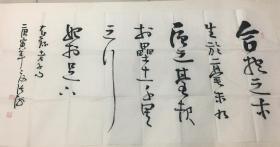 合抱之木
生於毫末九
層之臺起
於壘土千里
之行
始於足下
老子句
庚寅年